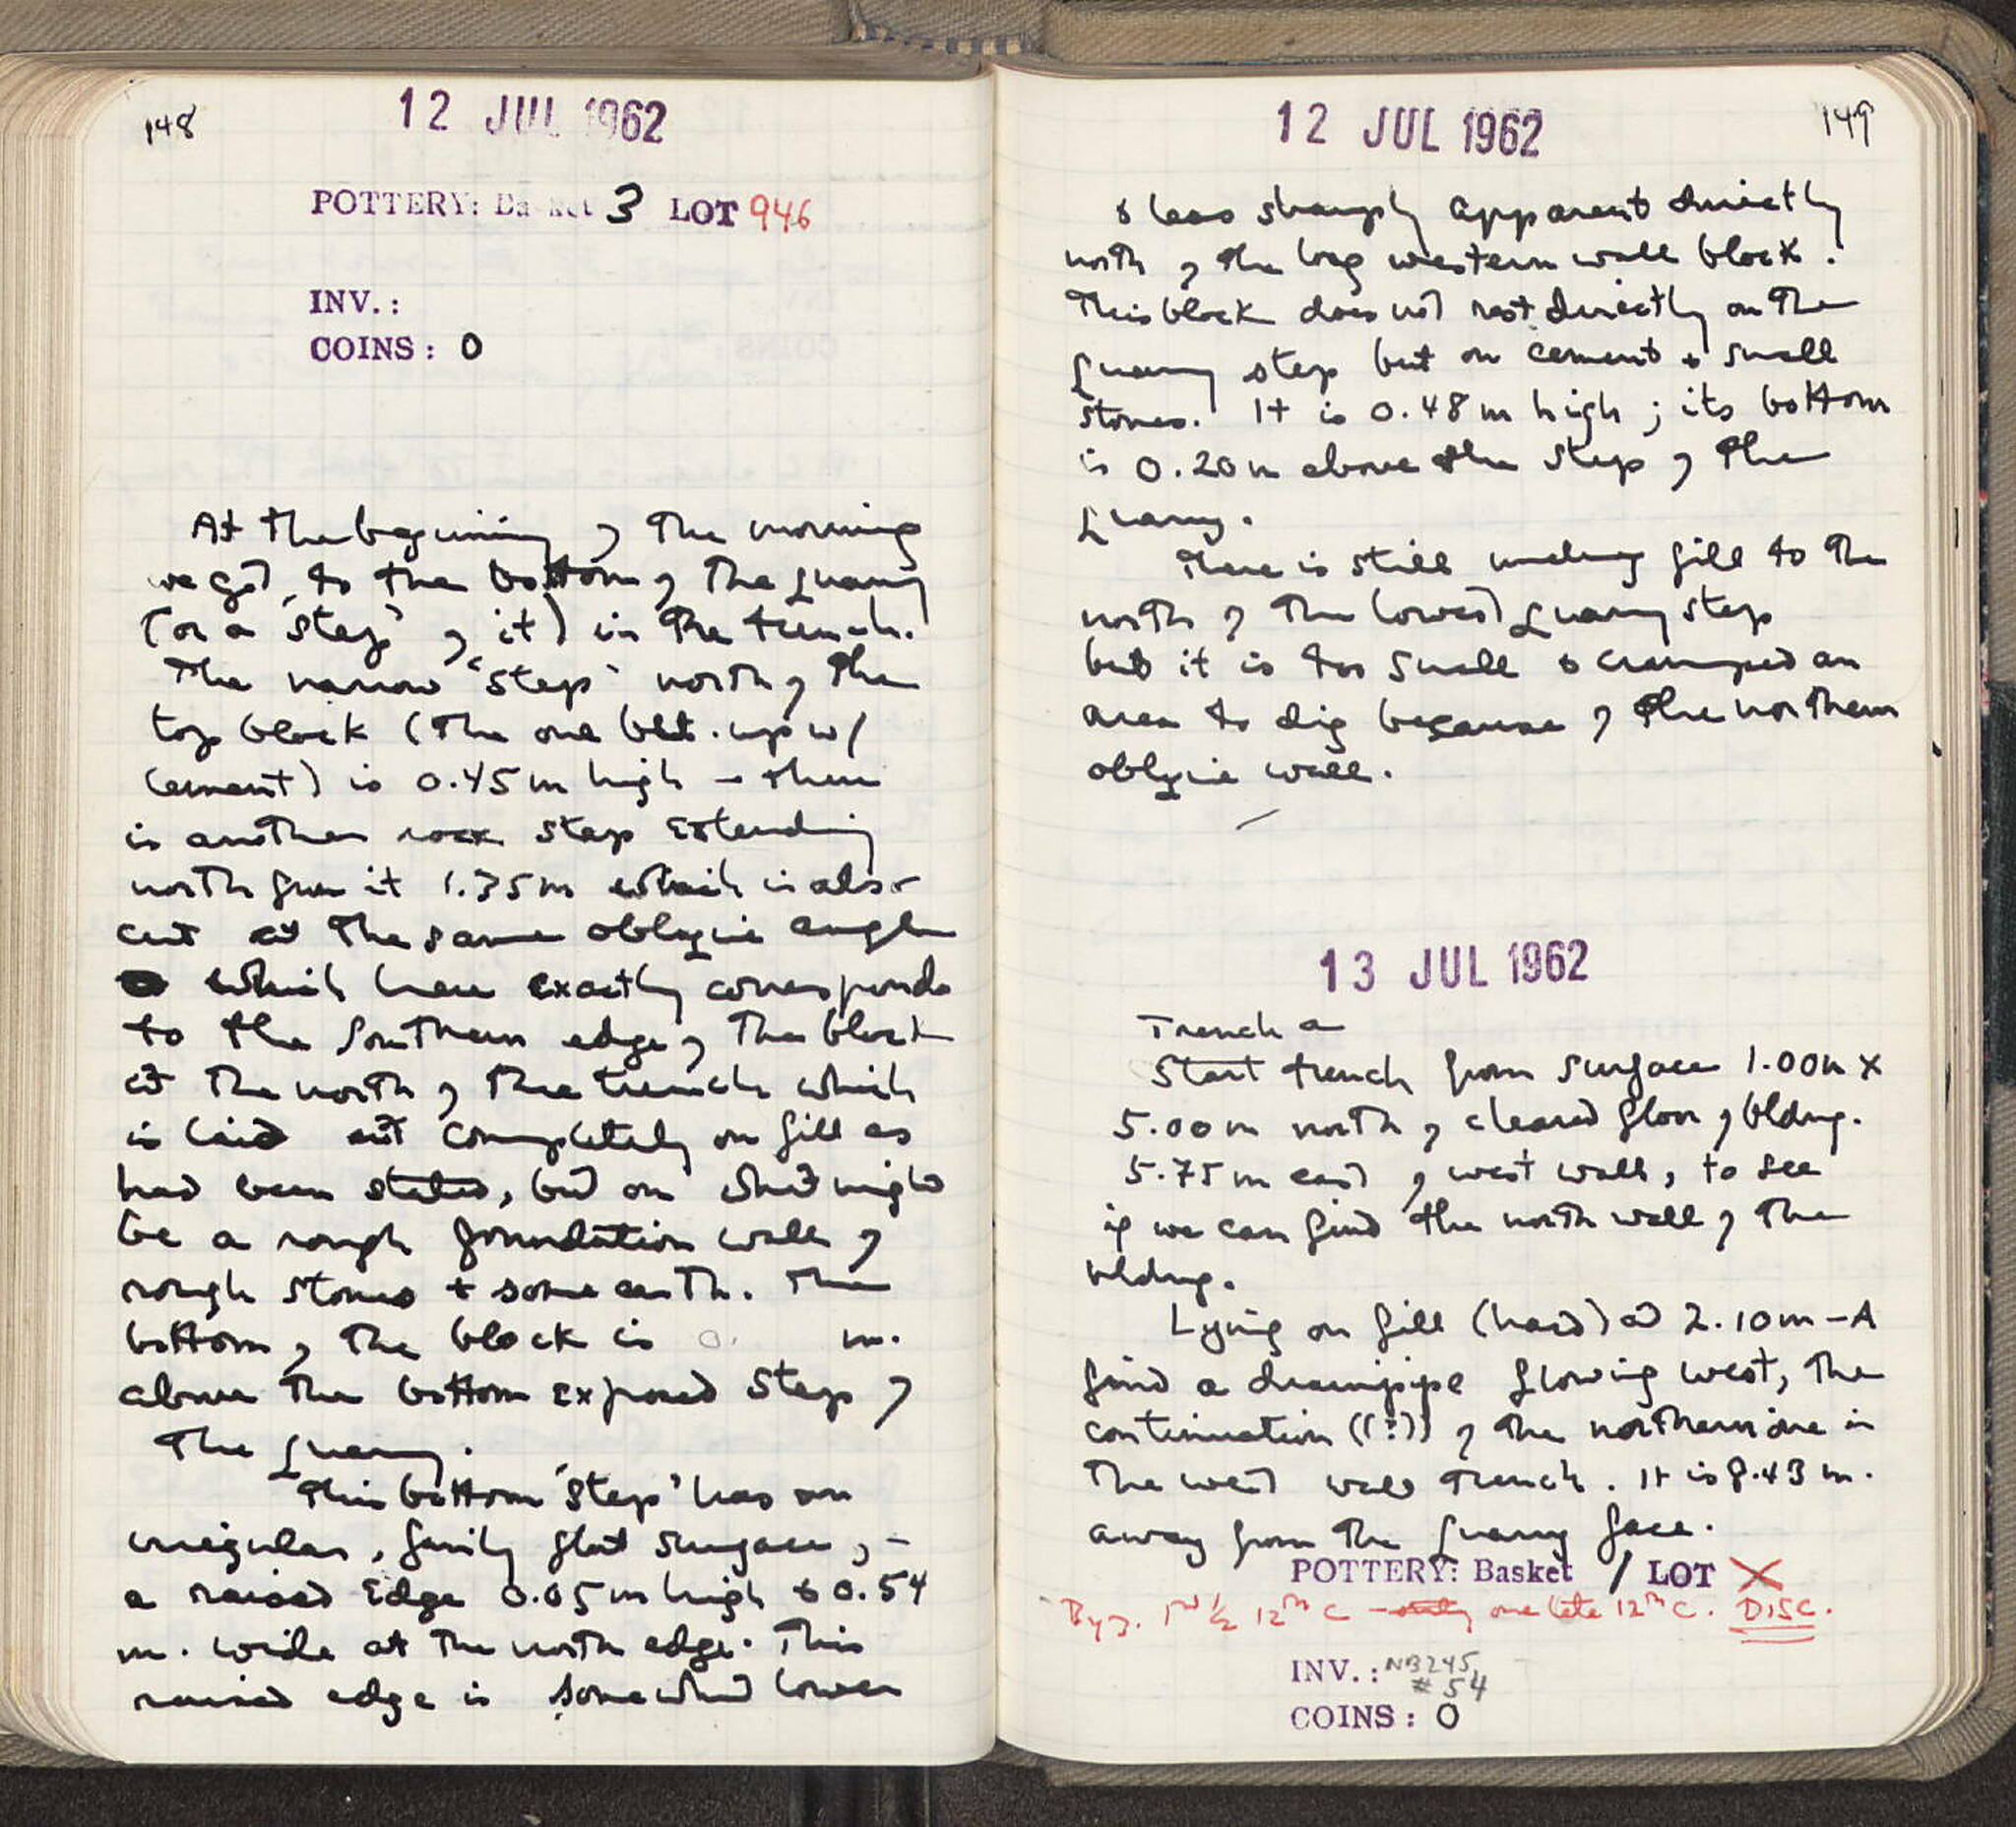 148
12 JUL 1962
POTTERY: Basket 3 LOT 946
INV.:
COINS: 0
At the beginning of the morning
we got to the bottom of the quarry
(or a 'step' of it) in the trench.
The narrow "step" north of the
top block (the one blt. up w/
cement) is 0.45 m high – there
is another rock step extending
north from it 1.35 m which is also
cut at the same oblique angle
which here exactly corresponds
to the southern edge of the block
at the north of the trench which
is laid not completely on fill as
had been stated, but on what might
be a rough foundation wall of
rough stones + some earth. The
bottom of the block is 0. m.
above the bottom exposed step of
the quarry.
This bottom 'step' has an
irregular, fairly flat surface, –
a raised edge 0.05 m high & 0.54
m. wide at the north edge. This
raised edge is somewhat lower
149
12 JUL 1962
& less sharply apparent directly
north of the long western wall block.
This block does not rest directly on the
quarry step but on cement + small
stones. It is 0.48 m high; its bottom
is 0.20 m above the step of the
quarry.
There is still undug fill to the
north of the lowest quarry step
but it is too small & cramped an
area to dig because of the northern
oblique wall.
13 JUL 1962
Trench a
Start trench from surface 1.00m x
5.00m north of cleared floor of bldng.
5.75 m east of west wall, to see
if we can find the north wall of the
bldng.
Lying on fill (hard) at 2.10m – A
find a drainpipe flowing west, the
continuation ((?)) of the northern one in
the west wall trench. It is 8.43 m.
away from the quarry face.
POTTERY: Basket 1 LOT X
Byz. 1st ½ 12th C – only one late 12th C. DISC.
INV.: NB245
#54
COINS: 0